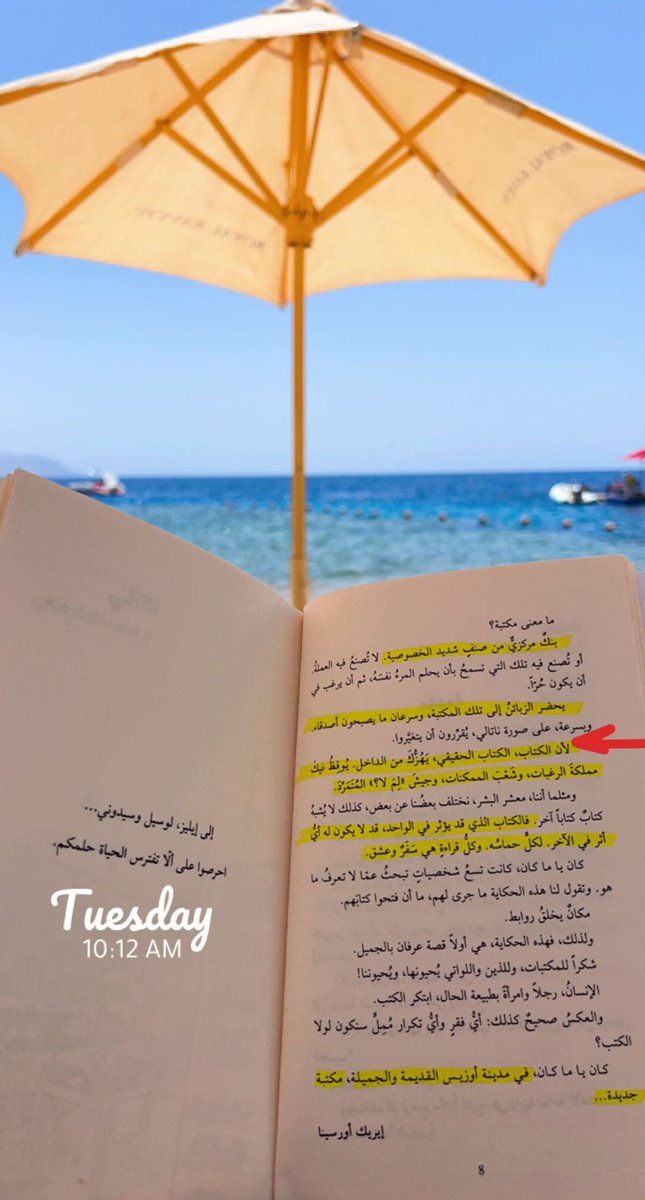 ROYAL SAVOY
ROYAL SAVOY
إلى إيليز، لوسيل وسيدوني...
احرصوا على ألّا تفترس الحياة حلمكم.
Tuesday
10:12 AM
ما معنى مكتبة؟
بنكٌ مركزيٌّ من صنفٍ شديد الخصوصية. لا تُصنعُ فيه العملةُ.
أو تُصنع فيه تلك التي تسمحُ بأن يحلم المرءُ نفسَهُ، ثم أن يرغب في
أن يكون حُرّاً.
يحضر الزبائنُ إلى تلك المكتبة، وسرعان ما يصبحون أصدقاء.
وبسرعة، على صورة ناتالي، يُقرِّرون أن يتغيَّروا.
لأن الكتاب، الكتاب الحقيقي، يَهُزُّكَ من الداخل. يُوقظُ فيكَ
مملكةَ الرغبات، وشَعْبَ الممكنات، وجيشَ «لِمَ لا؟» المُتَمَرِّدَة.
ومثلما أننا، معشر البشر، نختلف بعضُنا عن بعض، كذلك لا يُشبهُ
كتابٌ كتاباً آخر. فالكتاب الذي قد يؤثر في الواحد، قد لا يكون له أيُّ
أثر في الآخر. لكلٍّ حماسُه. وكلُّ قراءةٍ هي سَفَرٌ وعشق.
كان يا ما كان، كانت تسعُ شخصياتٍ تبحثُ عمّا لا تعرفُ ما
هو. وتقول لنا هذه الحكاية ما جرى لهم، ما أن فتحوا كتابَهم.
مكانٌ يخلقُ روابط.
ولذلك، فهذه الحكاية، هي أولاً قصة عرفان بالجميل.
شكراً للمكتبات، وللذين واللواتي يُحيونها، ويُحيوننا!
الإنسانُ، رجلاً وامرأةً بطبيعة الحال، ابتكر الكتب.
والعكسُ صحيحٌ كذلك: أيُّ فقرٍ وأيُّ تكرار مُمِلٍّ سنكون لولا
الكتب؟
كان يا ما كان، في مدينة أوزيس القديمة والجميلة، مكتبة
جديدة...
إيريك أورسينا
8